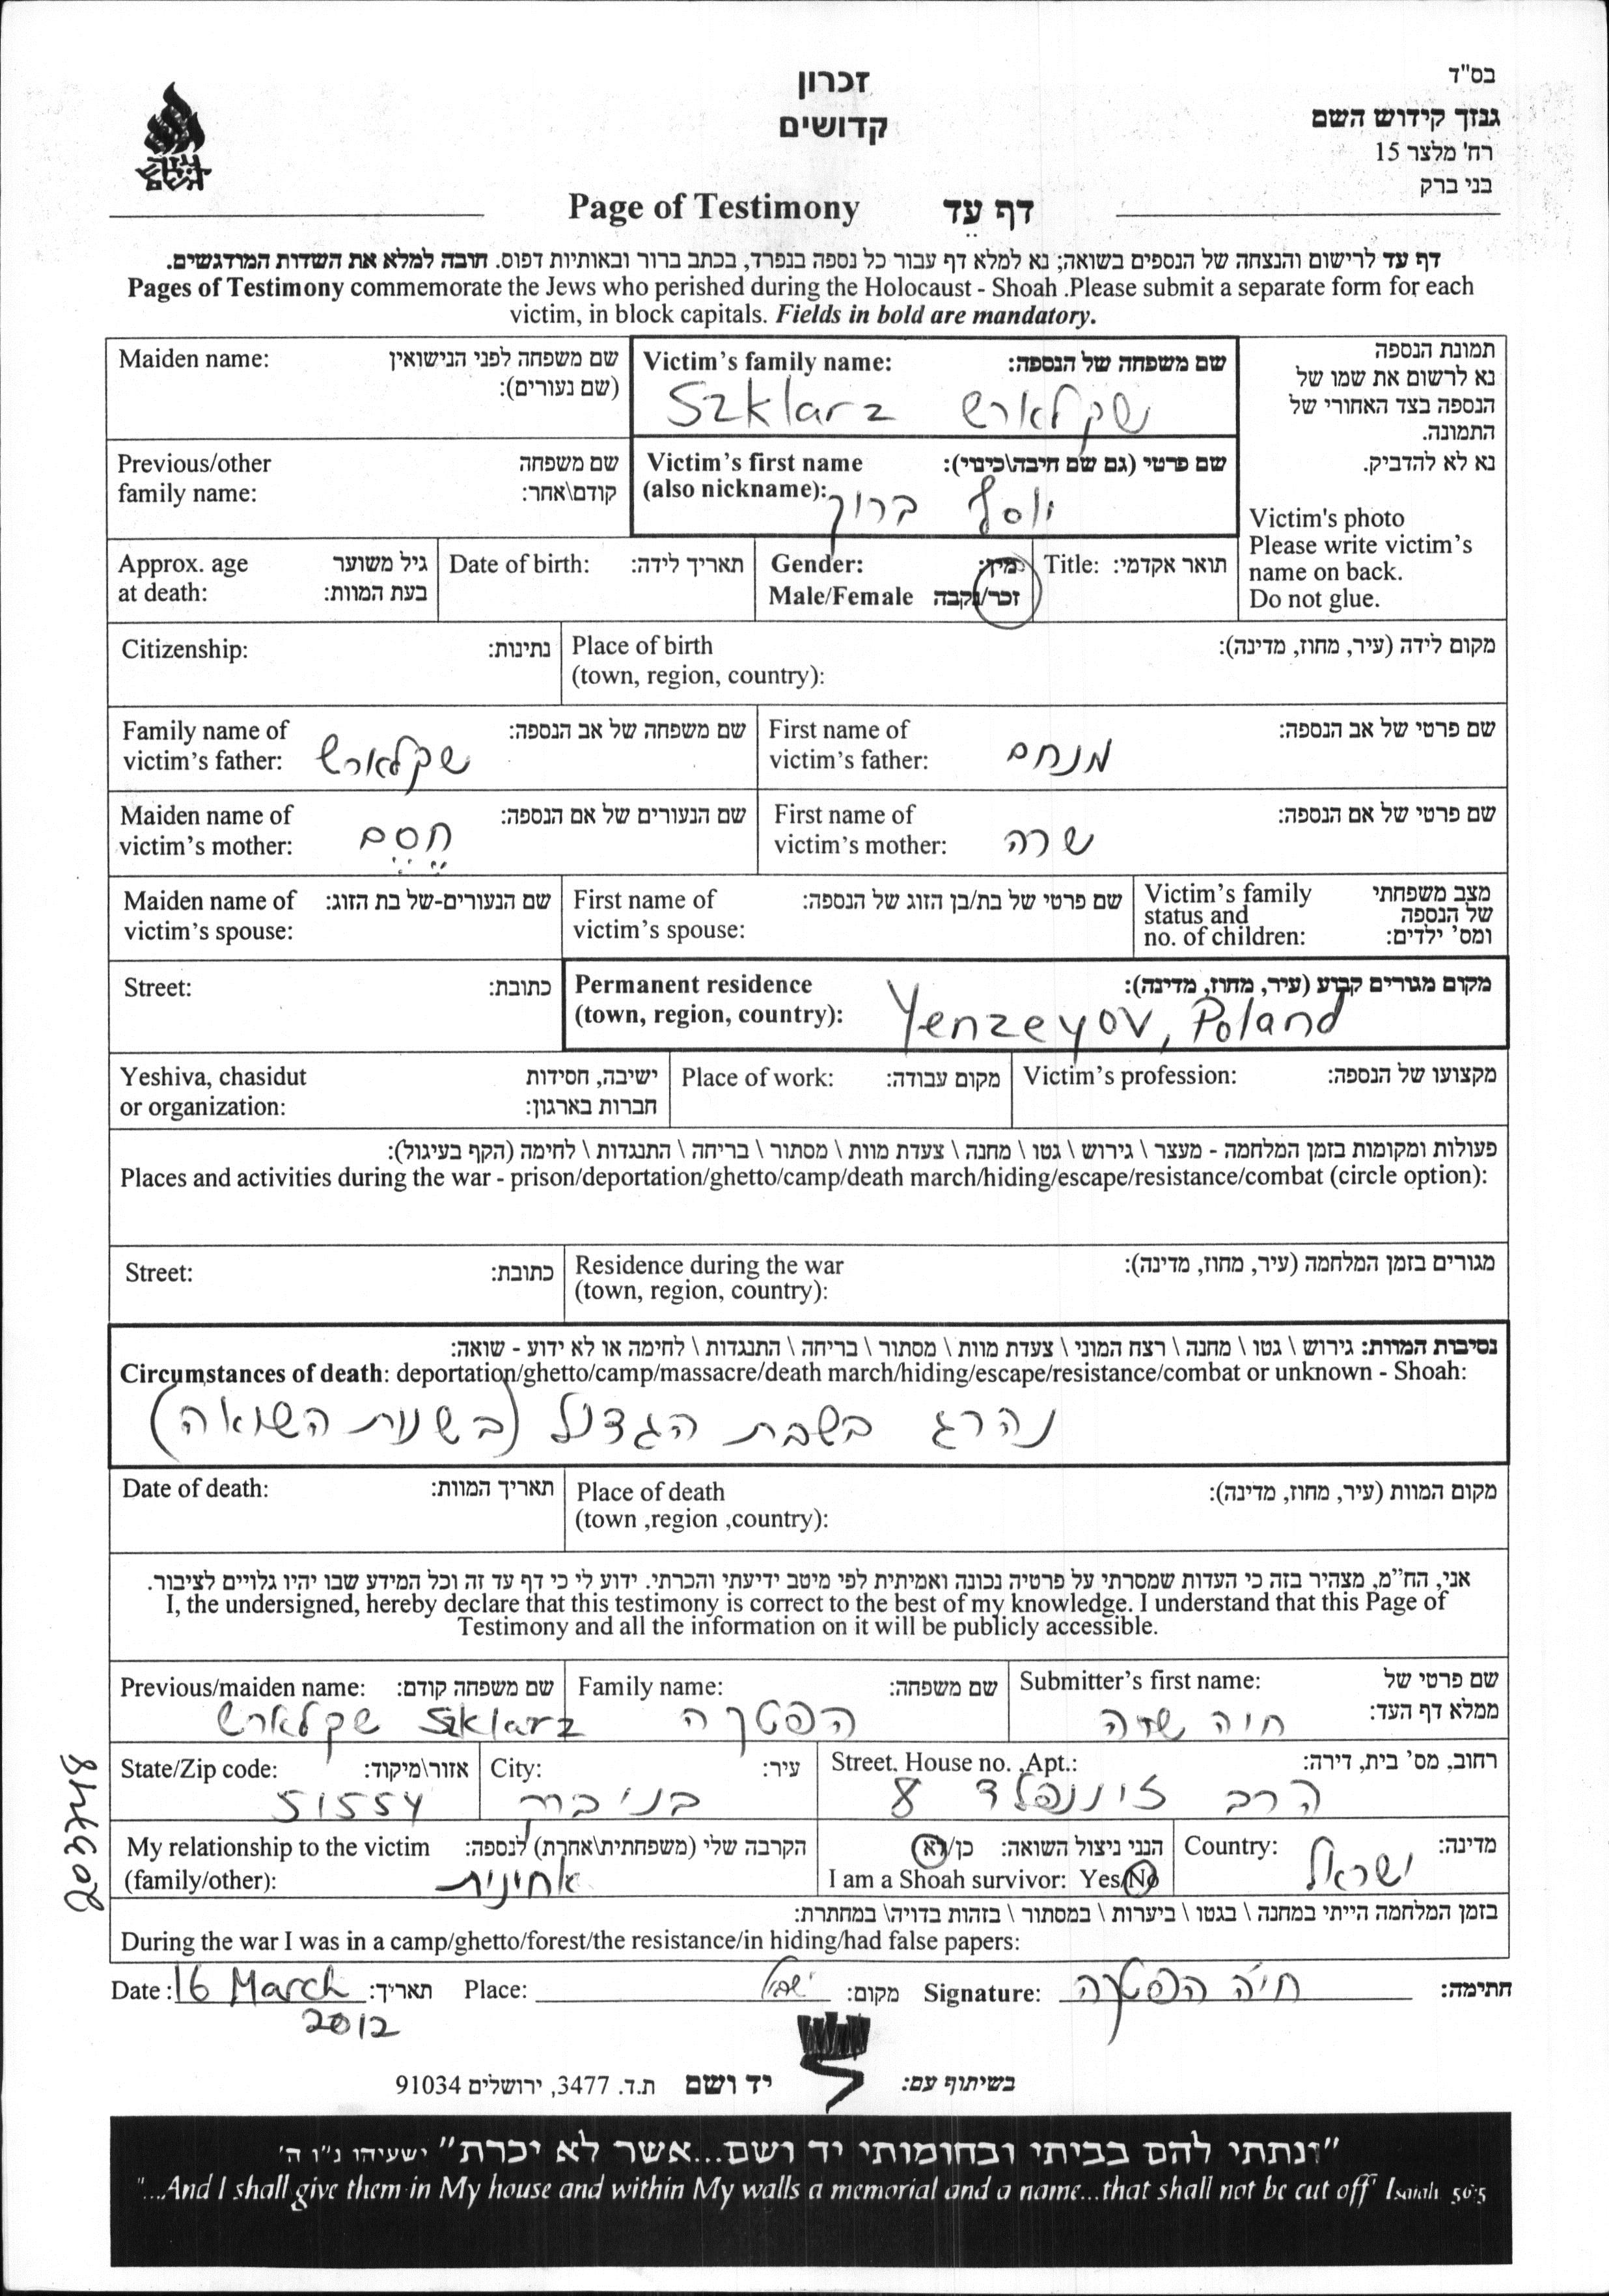 בס"ד
גנזך קידוש השם
רח' מלצר 15
בני ברק
זכרון
קדושים
Page of Testimony דף עד
דף עד לרישום והנצחה של הנספים בשואה; נא למלא דף עבור כל נספה בנפרד, בכתב ברור ובאותיות דפוס. חובה למלא את השדות המודגשים.
Pages of Testimony commemorate the Jews who perished during the Holocaust - Shoah .Please submit a separate form for each
victim, in block capitals. Fields in bold are mandatory.
תמונת הנספה
נא לרשום את שמו של
הנספה בצד האחורי של
התמונה.
נא לא להדביק.
Victim's photo
Please write victim's
name on back.
Do not glue.
Victim's family name: שם משפחה של הנספה:
Szklarz שקלארש
Maiden name: שם משפחה לפני הנישואין
(שם נעורים):
Victim's first name שם פרטי (גם שם חיבה\כינוי):
(also nickname): יוסף ברוך
Previous/other שם משפחה
family name: קודם\אחר:
Title: תואר אקדמי:
Gender: מין:
Male/Female זכר/נקבה
Date of birth: תאריך לידה:
Approx. age גיל משוער
at death: בעת המוות:
Place of birth מקום לידה (עיר, מחוז, מדינה):
(town, region, country):
Citizenship: נתינות:
First name of שם פרטי של אב הנספה:
victim's father: מנחם
Family name of שם משפחה של אב הנספה:
victim's father: שקלארש
First name of שם פרטי של אם הנספה:
victim's mother: שרה
Maiden name of שם הנעורים של אם הנספה:
victim's mother: חסם
Victim's family מצב משפחתי
status and של הנספה
no. of children: ומס' ילדים:
First name of שם פרטי של בת/בן הזוג של הנספה:
victim's spouse:
Maiden name of שם הנעורים-של בת הזוג:
victim's spouse:
Permanent residence מקום מגורים קבוע (עיר, מחוז, מדינה):
(town, region, country): Yenzeyov, Poland
Street: כתובת:
Victim's profession: מקצועו של הנספה:
Place of work: מקום עבודה:
Yeshiva, chasidut ישיבה, חסידות
or organization: חברות בארגון:
פעולות ומקומות בזמן המלחמה - מעצר \ גירוש \ גטו \ מחנה \ צעדת מוות \ מסתור \ בריחה \ התנגדות \ לחימה (הקף בעיגול):
Places and activities during the war - prison/deportation/ghetto/camp/death march/hiding/escape/resistance/combat (circle option):
Residence during the war מגורים בזמן המלחמה (עיר, מחוז, מדינה):
(town, region, country):
Street: כתובת:
נסיבות המוות: גירוש \ גטו \ מחנה \ רצח המוני \ צעדת מוות \ מסתור \ בריחה \ התנגדות \ לחימה או לא ידוע - שואה:
Circumstances of death: deportation/ghetto/camp/massacre/death march/hiding/escape/resistance/combat or unknown - Shoah:
נהרג בשבת הגדול (בשנות השואה)
Place of death מקום המוות (עיר, מחוז, מדינה):
(town ,region ,country):
Date of death: תאריך המוות:
אני, הח"מ, מצהיר בזה כי העדות שמסרתי על פרטיה נכונה ואמיתית לפי מיטב ידיעתי והכרתי. ידוע לי כי דף עד זה וכל המידע שבו יהיו גלויים לציבור.
I, the undersigned, hereby declare that this testimony is correct to the best of my knowledge. I understand that this Page of
Testimony and all the information on it will be publicly accessible.
Submitter's first name: שם פרטי של
ממלא דף העד:
חיה שרה
Family name: שם משפחה:
הפטקה
Previous/maiden name: שם משפחה קודם:
Szklarz שקלארש
Street, House no. ,Apt.: רחוב, מס' בית, דירה:
הרב זוננפלד 8
City: עיר:
בני ברק
State/Zip code: אזור\מיקוד:
51554
Country: מדינה:
ישראל
הנני ניצול השואה: כן/לא
I am a Shoah survivor: Yes/No
My relationship to the victim הקרבה שלי (משפחתית\אחרת) לנספה:
(family/other): אחינית
בזמן המלחמה הייתי במחנה \ בגטו \ ביערות \ במסתור \ בזהות בדויה\ במחתרת:
During the war I was in a camp/ghetto/forest/the resistance/in hiding/had false papers:
Date: 16 March תאריך: Place: ישראל מקום: Signature: חיה הפטקה חתימה:
2012
בשיתוף עם: יד ושם ת.ד. 3477, ירושלים 91034
"ונתתי להם בביתי ובחומותי יד ושם...אשר לא יכרת" ישעיהו נ"ו ה'
"...And I shall give them in My house and within My walls a memorial and a name...that shall not be cut off" Isaiah 56:5